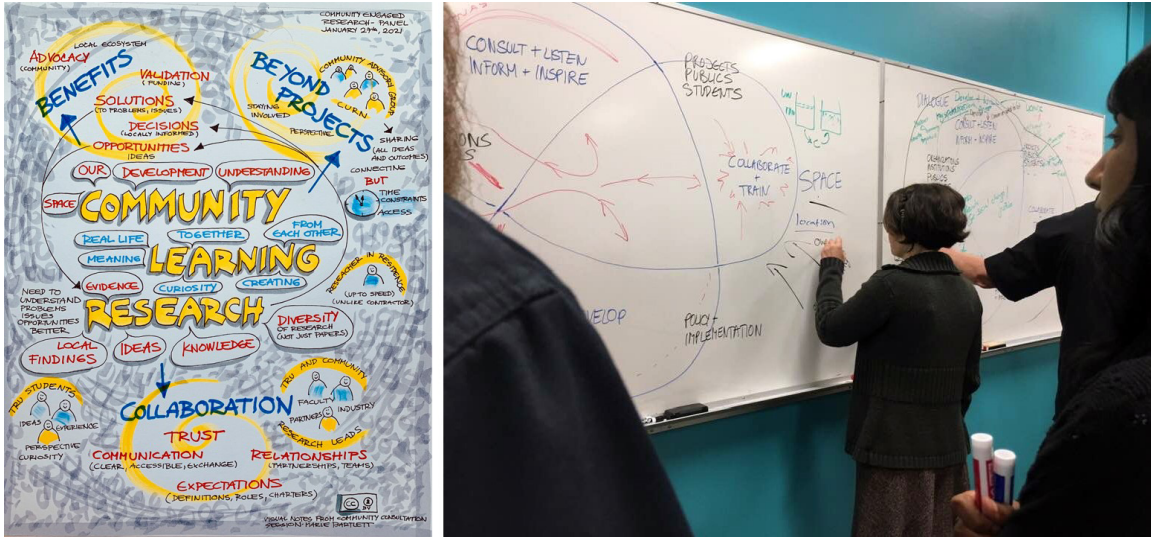 COMMUNITY ENGAGED
RESEARCH - PANEL
JANUARY 29TH, 2021
LOCAL ECOSYSTEM
ADVOCACY
(COMMUNITY)
BENEFITS
VALIDATION
(FUNDING)
SOLUTIONS
(TO PROBLEMS, ISSUES)
DECISIONS
(LOCALLY INFORMED)
OPPORTUNITIES
IDEAS
BEYOND
PROJECTS
COMMUNITY ADVISORY GROUP
CURN
STAYING
INVOLVED
PERSPECTIVE
SHARING
(ALL IDEAS
AND OUTCOMES)
CONNECTING
BUT
TIME
CONSTRAINTS
ACCESS
OUR
DEVELOPMENT
UNDERSTANDING
SPACE
COMMUNITY
REAL LIFE
TOGETHER
FROM
EACH OTHER
MEANING
LEARNING
EVIDENCE
CURIOSITY
CREATING
RESEARCH
RESEACHER IN RESIDENCE
(UP TO SPEED)
(UNLIKE CONTRACTOR)
NEED TO
UNDERSTAND
PROBLEMS
ISSUES
OPPORTUNITIES
BETTER
LOCAL
FINDINGS
IDEAS
KNOWLEDGE
DIVERSITY
OF RESEARCH
(NOT JUST PAPERS)
TRU STUDENTS
IDEAS
EXPERIENCE
PERSPECTIVE
CURIOSITY
TRU AND COMMUNITY
FACULTY
PARTNERS
INDUSTRY
RESEARCH LEADS
COLLABORATION
TRUST
COMMUNICATION
(CLEAR, ACCESSIBLE, EXCHANGE)
RELATIONSHIPS
(PARTNERSHIPS, TEAMS)
EXPECTATIONS
(DEFINITIONS, ROLES, CHARTERS)
CC BY
VISUAL NOTES FROM COMMUNITY CONSULTATION
SESSION: MARIE BARTLETT
CONSULT + LISTEN
INFORM + INSPIRE
PROJECTS
PUBLICS
STUDENTS
COLLABORATE
+
TRAIN
SPACE
location
POLICY +
IMPLEMENTATION
DIALOGUE
CONSULT + LISTEN
INFORM + INSPIRE